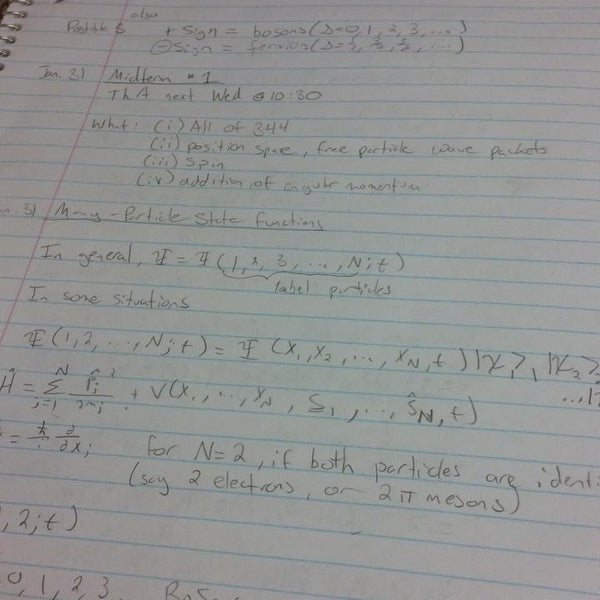 also
Postulate 5 + sign = bosons (s=0, 1, 2, 3, ...)
⊖ sign = fermions (s=1/2, 3/2, 5/2, ...)
Jan. 31 Midterm #1
Th A next Wed @ 10:30
What: (i) All of 344
(ii) position space, free particle wave packets
(iii) Spin
(iv) addition of angular momentum
n. 31 Many-Particle State Functions
In general, Ψ = Ψ(1, 2, 3, ..., N; t)
label particles
In some situations
Ψ(1, 2, ..., N; t) = Ψ(x₁, x₂, ..., x_N, t) |χ₁>₁ |χ₂>₂
..., |
Ĥ = Σ_{i=1}^{N} p̂ᵢ²/2mᵢ + V(x₁, ..., x_N, S₁, ..., Ŝ_N, t)
= ħ/i ∂/∂xᵢ for N=2, if both particles are identi
(say 2 electrons, or 2 π mesons)
, 2; t)
0, 1, 2, 3